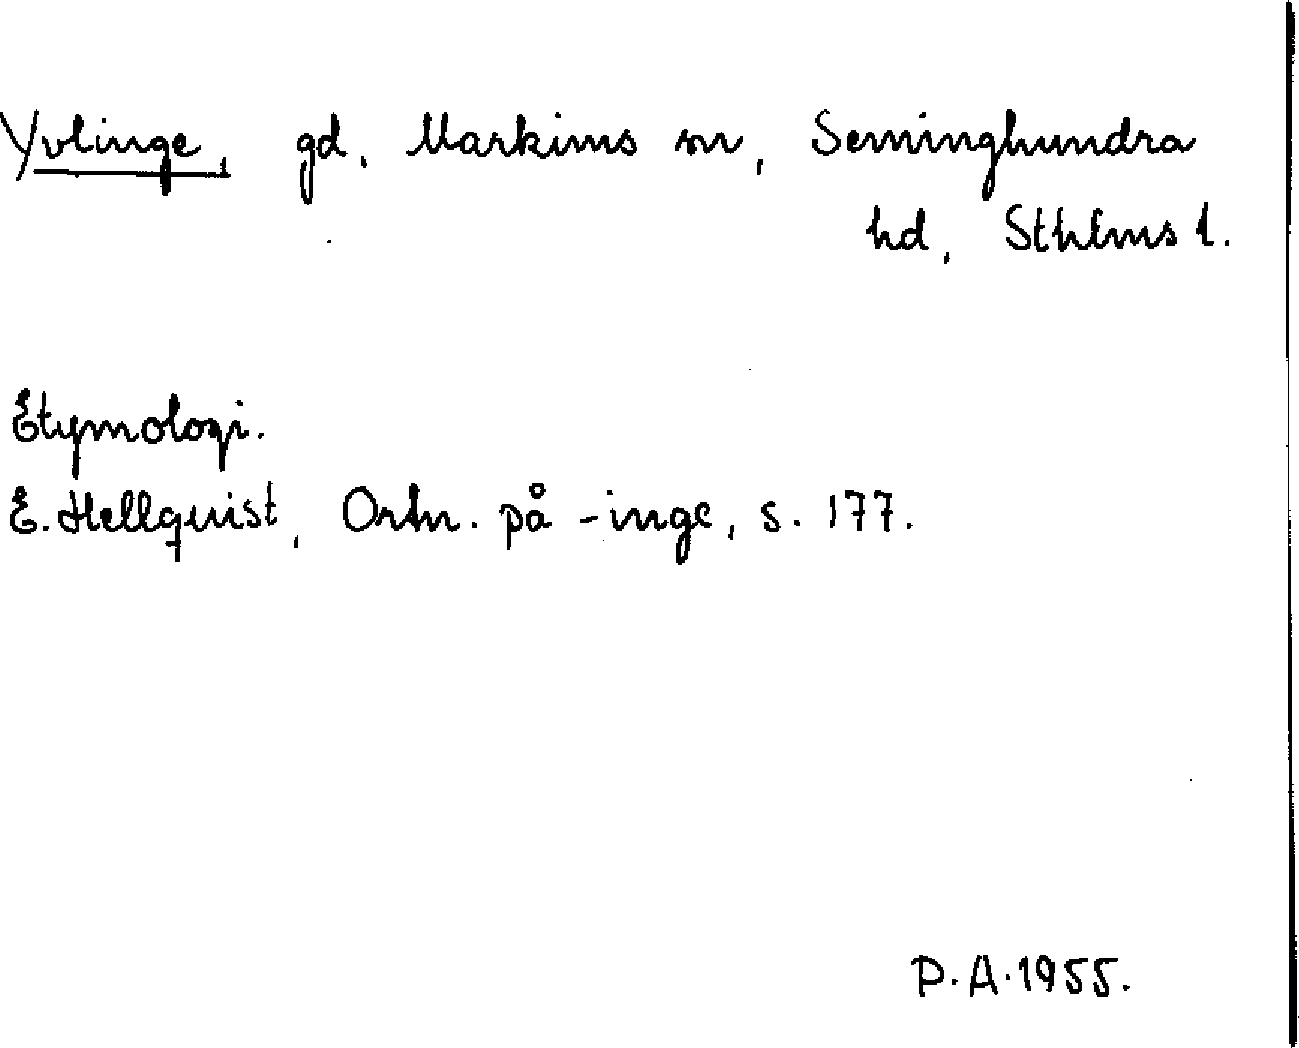 Yvlinge, gd, Markims sn, Seminghundra
hd, Sthlms l.
Etymologi.
E. Hellquist, Ortn. på -inge, s. 177.
P.A. 1955.